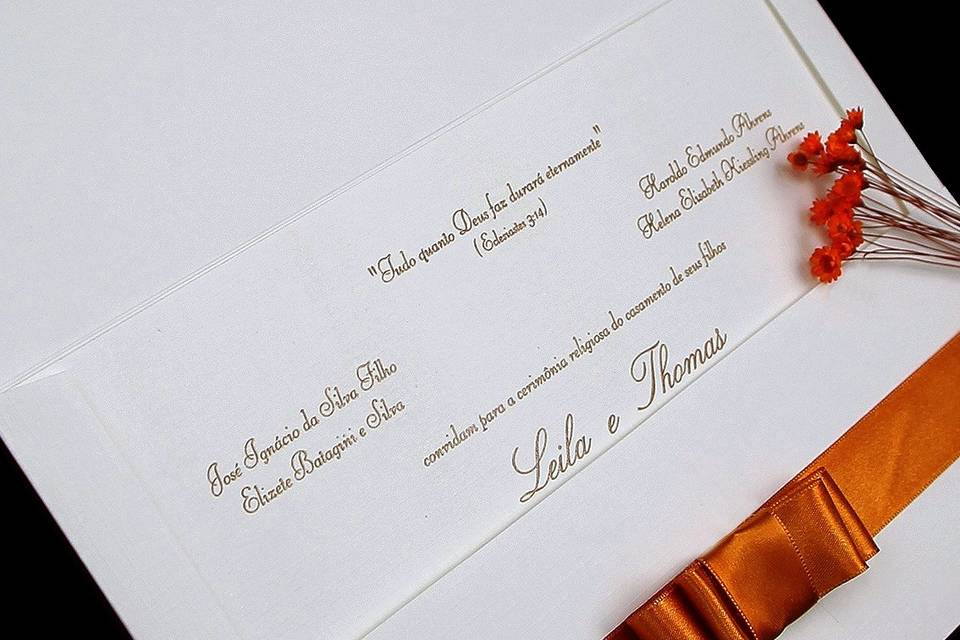 "Tudo quanto Deus faz durará eternamente"
(Eclesiastes 3:14)
José Ignácio da Silva Filho
Elizete Batagini e Silva
Haroldo Edmundo Ahrens
Helena Elisabeth Kiessling Ahrens
convidam para a cerimônia religiosa do casamento de seus filhos
Leila e Thomas